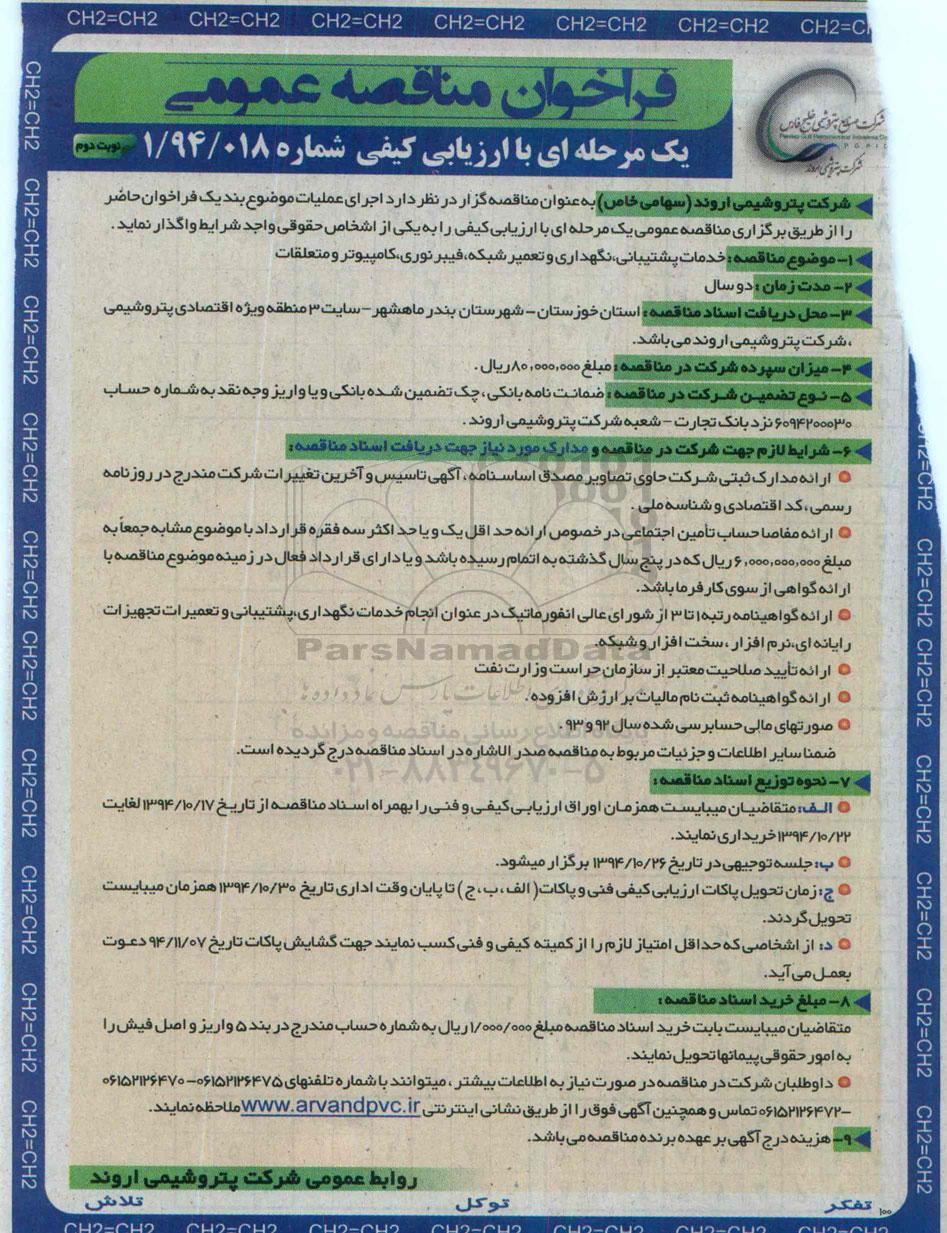 CH2=CH2 CH2=CH2 CH2=CH2 CH2=CH2 CH2=CH2 CH2=CH2 CH2=CH2
شرکت صنایع پتروشیمی خلیج فارس
شرکت پتروشیمی اروند
فراخوان مناقصه عمومی
یک مرحله ای با ارزیابی کیفی شماره ۱/۹۴/۰۱۸
نوبت دوم
شرکت پتروشیمی اروند (سهامی خاص) به عنوان مناقصه گزار در نظر دارد اجرای عملیات موضوع بند یک فراخوان حاضر
را از طریق برگزاری مناقصه عمومی یک مرحله ای با ارزیابی کیفی را به یکی از اشخاص حقوقی واجد شرایط واگذار نماید .
۱- موضوع مناقصه : خدمات پشتیبانی،نگهداری و تعمیر شبکه،فیبر نوری،کامپیوتر و متعلقات
۲- مدت زمان : دو سال
۳- محل دریافت اسناد مناقصه : استان خوزستان - شهرستان بندر ماهشهر - سایت ۳ منطقه ویژه اقتصادی پتروشیمی
،شرکت پتروشیمی اروند می باشد.
۴- میزان سپرده شرکت در مناقصه : مبلغ ۸۰,۰۰۰,۰۰۰ ریال .
۵- نوع تضمین شرکت در مناقصه : ضمانت نامه بانکی ، چک تضمین شده بانکی و یا واریز وجه نقد به شماره حساب
۶۰۹۴۲۰۰۰۳۰ نزد بانک تجارت - شعبه شرکت پتروشیمی اروند .
۶- شرایط لازم جهت شرکت در مناقصه و مدارک مورد نیاز جهت دریافت اسناد مناقصه :
ارائه مدارک ثبتی شرکت حاوی تصاویر مصدق اساسنامه ، آگهی تاسیس و آخرین تغییرات شرکت مندرج در روزنامه
رسمی ، کد اقتصادی و شناسه ملی .
ارائه مفاصا حساب تأمین اجتماعی در خصوص ارائه حد اقل یک و یا حد اکثر سه فقره قرارداد با موضوع مشابه جمعاً به
مبلغ ۶,۰۰۰,۰۰۰,۰۰۰ ریال که در پنج سال گذشته به اتمام رسیده باشد و یا دارای قرارداد فعال در زمینه موضوع مناقصه با
ارائه گواهی از سوی کارفرما باشد.
ارائه گواهینامه رتبه ۱ تا ۳ از شورای عالی انفورماتیک در عنوان انجام خدمات نگهداری،پشتیبانی و تعمیرات تجهیزات
رایانه ای،نرم افزار ، سخت افزار و شبکه.
ارائه تأیید صلاحیت معتبر از سازمان حراست وزارت نفت
ارائه گواهینامه ثبت نام مالیات بر ارزش افزوده .
صورتهای مالی حسابرسی شده سال ۹۲ و ۹۳ .
ضمنا سایر اطلاعات و جزئیات مربوط به مناقصه صدر الاشاره در اسناد مناقصه درج گردیده است.
ParsNamadData
پایگاه اطلاع رسانی مناقصه و مزایده
۰۲۱-۸۸۳۴۹۶۷۰-۵
۷- نحوه توزیع اسناد مناقصه :
الف: متقاضیان میبایست همزمان اوراق ارزیابی کیفی و فنی را بهمراه اسناد مناقصه از تاریخ ۱۳۹۴/۱۰/۱۷ لغایت
۱۳۹۴/۱۰/۲۲ خریداری نمایند.
ب: جلسه توجیهی در تاریخ ۱۳۹۴/۱۰/۲۶ برگزار میشود.
ج: زمان تحویل پاکات ارزیابی کیفی فنی و پاکات ( الف ، ب ، ج ) تا پایان وقت اداری تاریخ ۱۳۹۴/۱۰/۳۰ همزمان میبایست
تحویل گردند.
د: از اشخاصی که حداقل امتیاز لازم را از کمیته کیفی و فنی کسب نمایند جهت گشایش پاکات تاریخ ۹۴/۱۱/۰۷ دعوت
بعمل می آید.
۸- مبلغ خرید اسناد مناقصه :
متقاضیان میبایست بابت خرید اسناد مناقصه مبلغ ۱/۰۰۰/۰۰۰ ریال به شماره حساب مندرج در بند ۵ واریز و اصل فیش را
به امور حقوقی پیمانها تحویل نمایند.
داوطلبان شرکت در مناقصه در صورت نیاز به اطلاعات بیشتر ، میتوانند با شماره تلفنهای ۰۶۱۵۲۱۲۶۴۷۵ - ۰۶۱۵۲۱۲۶۴۷۰
-۰۶۱۵۲۱۲۶۴۷۲ تماس و همچنین آگهی فوق را از طریق نشانی اینترنتی www.arvandpvc.ir ملاحظه نمایند.
۹- هزینه درج آگهی بر عهده برنده مناقصه می باشد.
روابط عمومی شرکت پتروشیمی اروند
تفکر توکل تلاش
۱۰۰
CH2=CH2 CH2=CH2 CH2=CH2 CH2=CH2 CH2=CH2 CH2=CH2 CH2=CH2